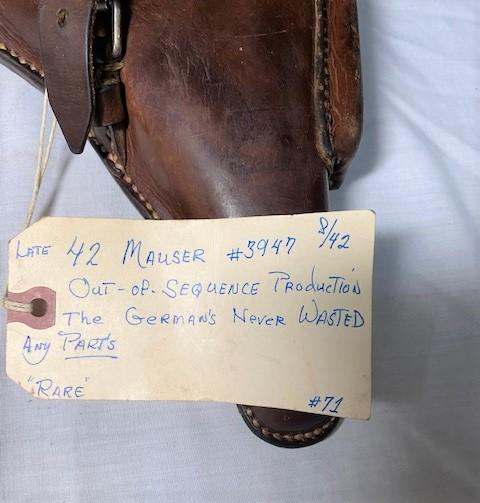 Late 42 Mauser #3947 8/42
Out-of-Sequence Production
The German's Never Wasted
Any Parts
"Rare"
#71